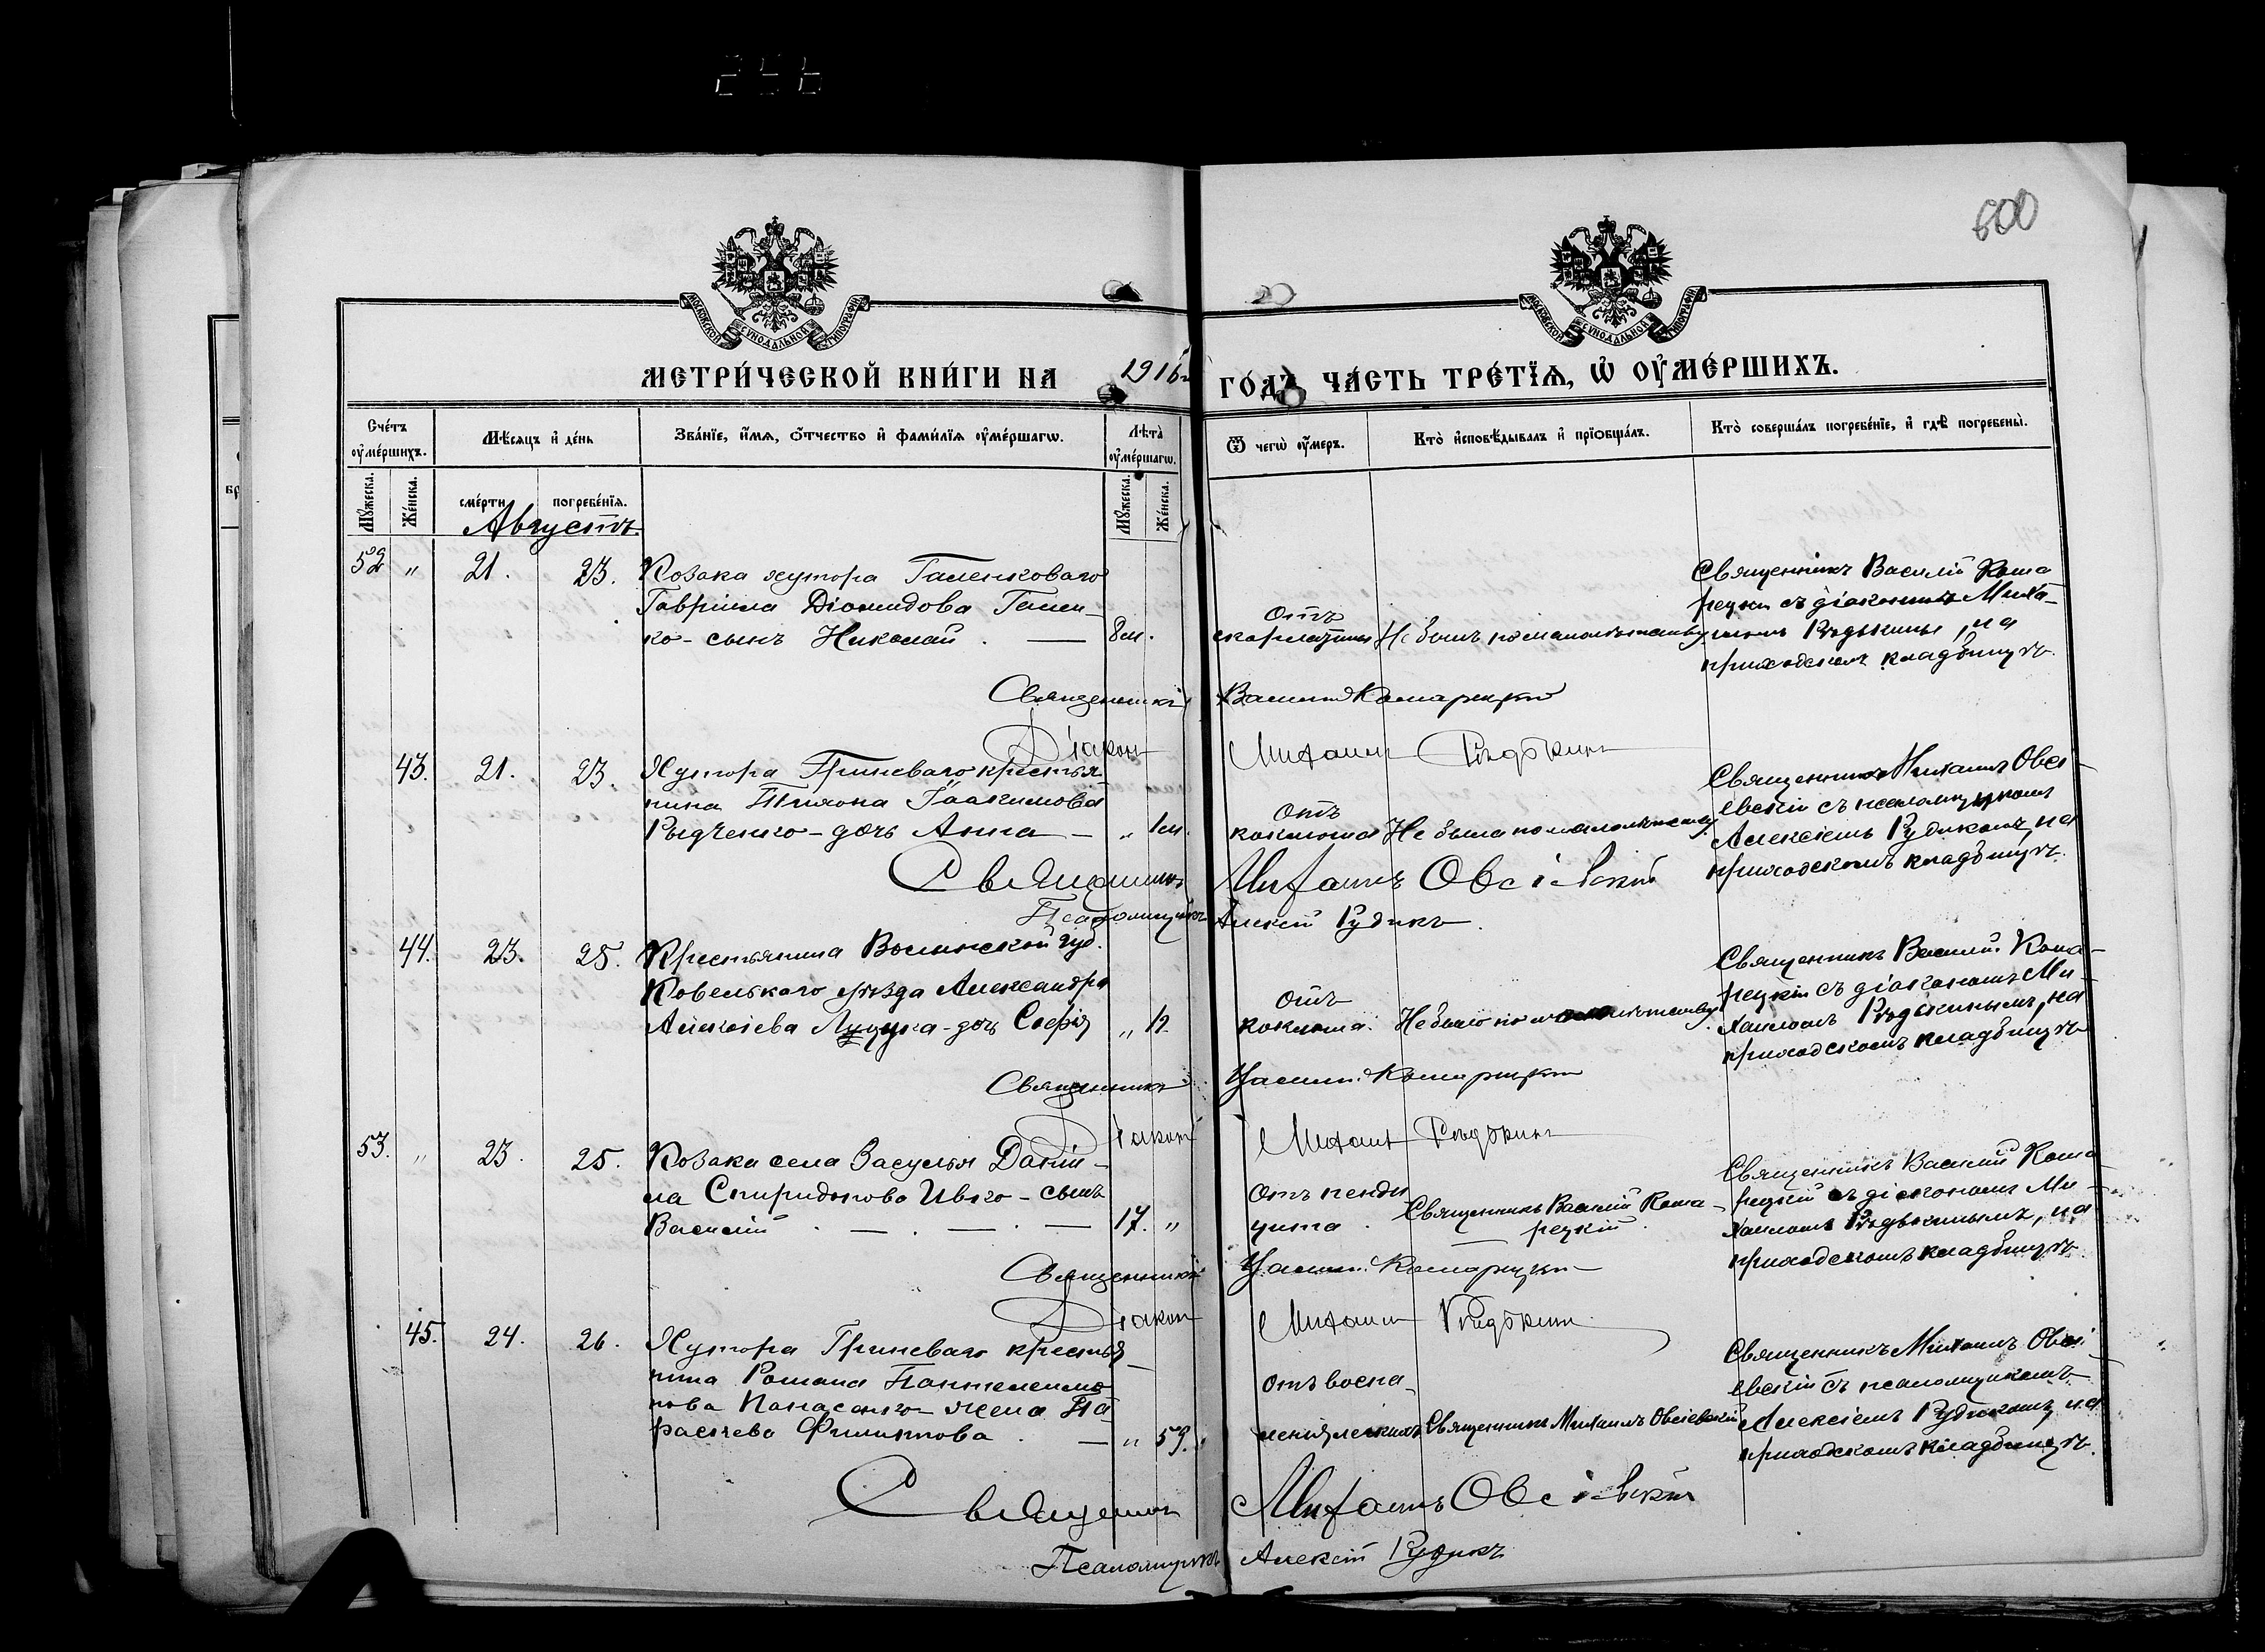 600
МОСКОВСКОЙ СѴНОДАЛЬНОЙ ТИПОГРАФІИ
МОСКОВСКОЙ СѴНОДАЛЬНОЙ ТИПОГРАФІИ
МЕТРИ́ЧЕСКОЙ КНИ́ГИ НА 1916 ГО́ДЪ ЧА́СТЬ ТРЕ́ТІѦ, Ѡ҆ ОУ҆МЕ́РШИХЪ.
Сче́тъ оу҆ме́ршихъ.
Мѣ́сяцъ и҆ де́нь
Зва́нїе, и҆́мѧ, ѻ҆́тчество и҆ фами́лїѧ оу҆ме́ршагѡ.
Лѣ́та оу҆ме́ршагѡ.
Ѿ чегѡ̀ оу҆́меръ.
Кто̀ и҆сповѣ́дывалъ и҆ прїѡбща́лъ.
Кто̀ соверша́лъ погребе́нїе, и҆ гдѣ̀ погребены̀.
Мꙋ́жеска.
Же́нска.
сме́рти
погребе́нїѧ.
Мꙋ́жеска.
Же́нска.
Августъ.
52 " 21. 23.
Козака хутора
Гавріила Діомидова
ко - сынъ Николай . — 8 м.
Отъ
скарлатины
Не былъ по малолѣтству
Священникъ Василій Кома
рецкій съ діакономъ Миха-
иломъ Рѣдькинымъ, на
приходскомъ кладбищѣ.
Священникъ Василій Комарецкій
Діаконъ Михаилъ Рѣдькинъ
43. 21. 23.
Хутора Гриневаго крестья
нина Тихона Іоакимова
Рыдченко - дочь Анна — " 1 м.
Отъ
коклюша
Не была по малолѣтству
Священникъ Михаилъ Овсі-
евскій съ псаломщикомъ
Алексіемъ Рудикомъ, на
приходскомъ кладбищѣ.
Священникъ Михаилъ Овсіевскій
Псаломщикъ Алексій Рудикъ.
44. 23. 25.
Крестьянина Волынской губ.
Ковельскаго уѣзда Александра
Алексіева - дочь Софія "
Отъ
коклюша.
Не было по малолѣтству
Священникъ Василій Кома-
рецкій съ діакономъ Ми-
хаиломъ Рѣдькинымъ, на
приходскомъ кладбищѣ
Священникъ Василій Комарецкій
Діаконъ Михаилъ Рѣдькинъ
53. " 23. 25.
Козака села Засулья Даніи-
ла Спиридонова Ивко - сынъ
Василій . — . — . — 17. "
Отъ
Священникъ Василій Кома-
рецкій.
Священникъ Василій Кома-
рецкій съ діакономъ Ми-
хаиломъ Рѣдькинымъ, на
приходскомъ кладбищѣ.
Священникъ Василій Комарецкій
Діаконъ Михаилъ Рѣдькинъ
45. 24. 26.
Хутора Гриневаго крестья
нина Романа Пантелеимо
нова Панасенко - жена Па
раскева Филиппова . — " 59.
отъ воспа-
ленія легкихъ
Священникъ Михаилъ Овсіевскій
Священникъ Михаилъ Овсі-
евскій съ псаломщикомъ
Алексіемъ Рудикомъ, на
приходскомъ кладбищѣ.
Священникъ Михаилъ Овсіевскій
Псаломщикъ Алексій Рудикъ